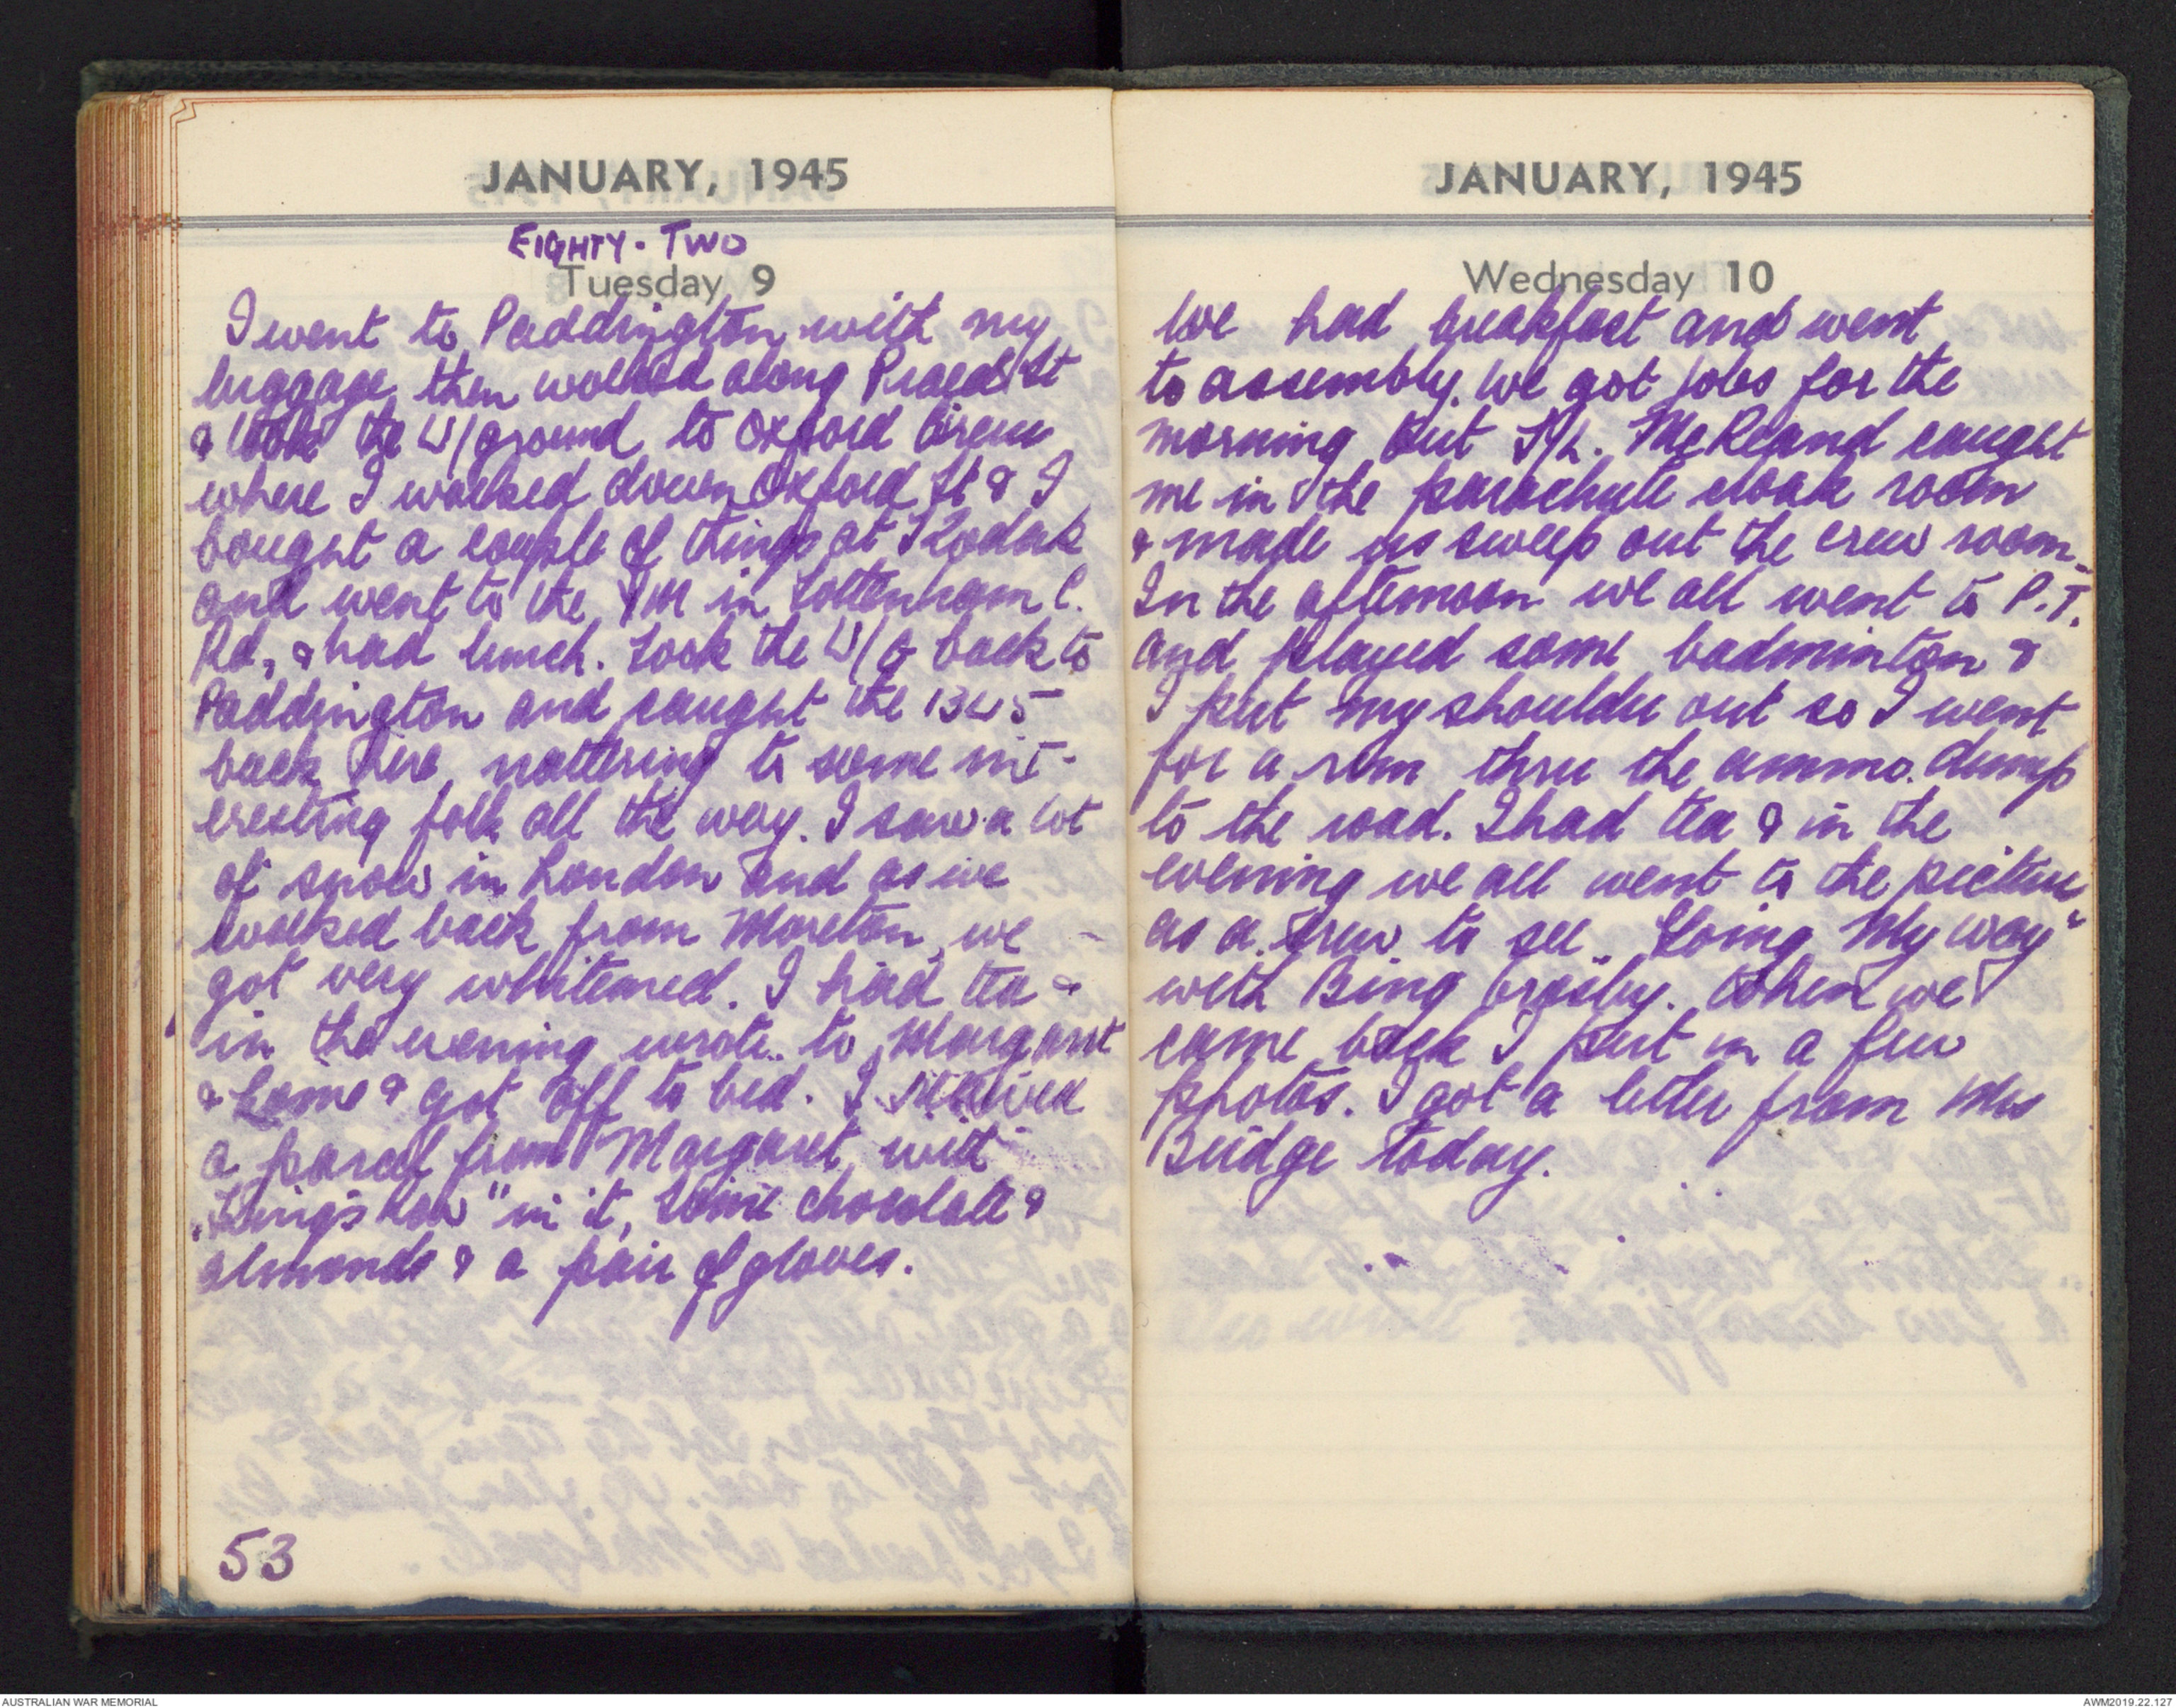 JANUARY, 1945
EIGHTY-TWO
Tuesday 9
I went to Paddington with my
luggage then walked along Praed St
& took the U/ground to Oxford Circus
where I walked down Oxford St & I
bought a couple of things at Kodak
and went to the YM in Tottenham C.
Rd, & had lunch. Took the U/G back to
Paddington and caught the 1345
back here, nattering to some int-
eresting folk all the way. I saw a lot
of snow in London and as we
walked back from Moreton, we
got very whitened. I had tea &
in the evening wrote to Margaret
& home & got off to bed. I received
a parcel from Margaret with
"King's Row" in it, some chocolate &
almonds & a pair of gloves.
53
JANUARY, 1945
Wednesday 10
We had breakfast and went
to assembly. We got jobs for the
morning but F/L. caught
me in the parachute cloak room
& made us sweep out the crew room.
In the afternoon we all went to P.T.
and played some badminton &
I put my shoulder out so I went
for a run thru the ammo. dump
to the road. I had tea & in the
evening we all went to the picture
as a crew to see "Going My Way"
with Bing Crosby. When we
came back I put in a few
photos. I got a letter from Mrs
Bridge today.
AUSTRALIAN WAR MEMORIAL
AWM2019.22.127